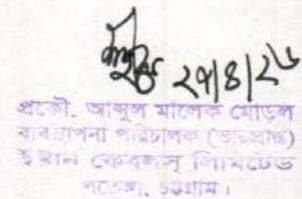 ২৭/৪/২৬
প্রকৌ. আব্দুল মালেক মোড়ল
ব্যবস্থাপনা পরিচালক (ভারপ্রাপ্ত)
লিমিটেড
পতেঙ্গা, চট্টগ্রাম।